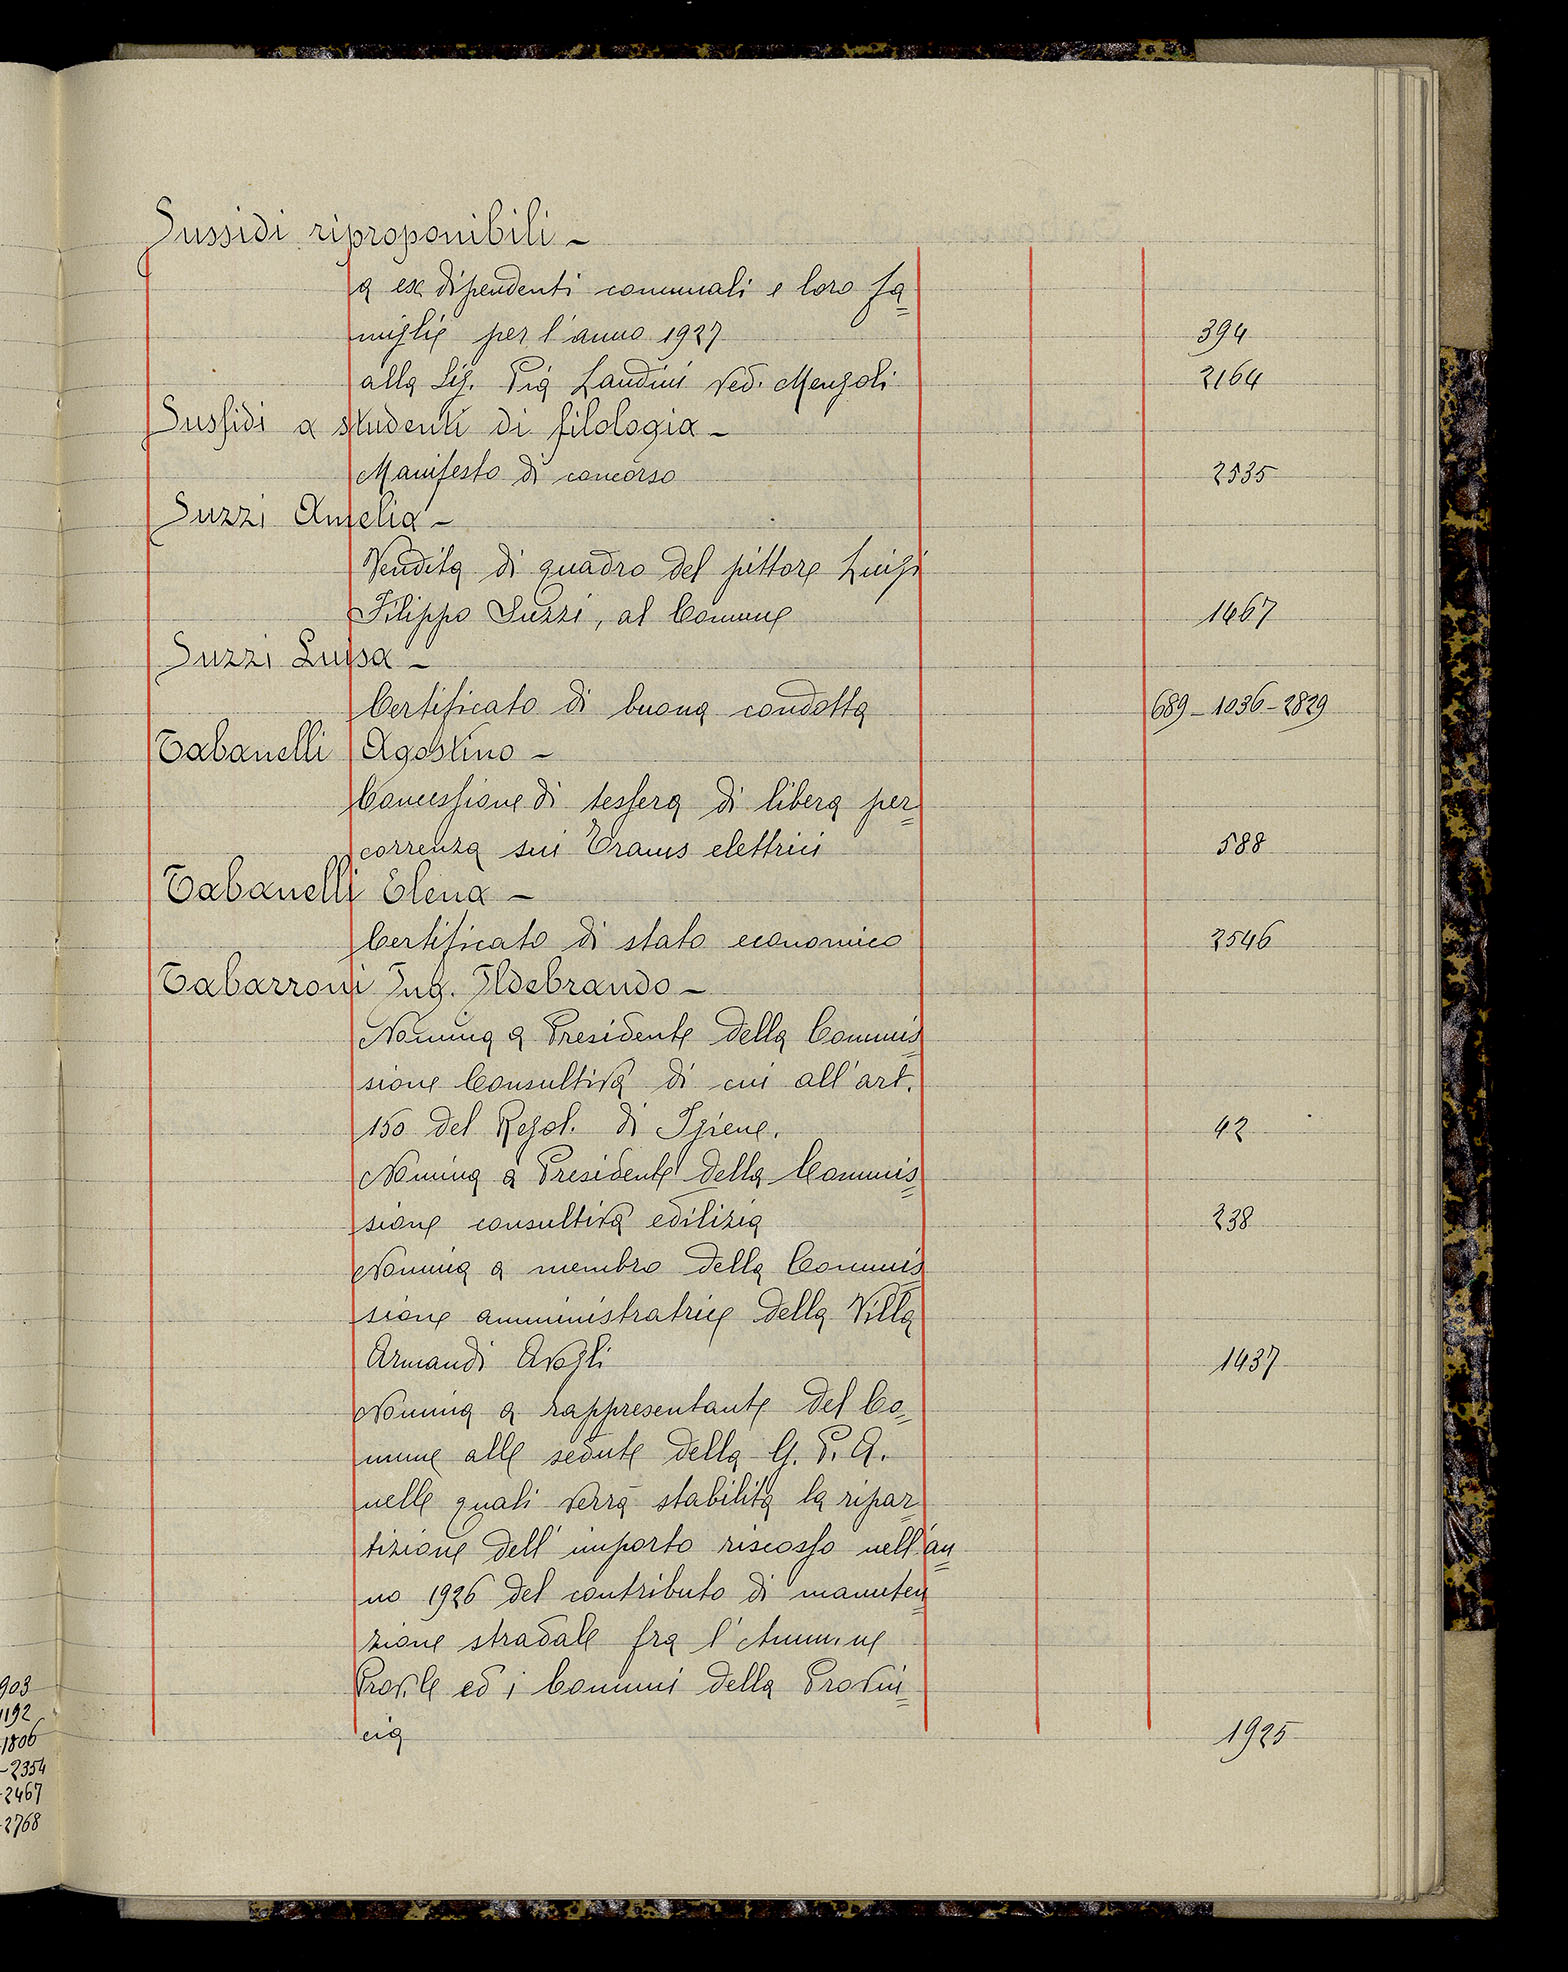 Sussidi riproponibili –
a ex dipendenti comunali e loro fa=
miglie per l'anno 1927 394
alla Sig. Pia Landini Ved. Mengoli 2164
Sussidi a studenti di filologia –
Manifesto di concorso 2535
Suzzi Amelia –
Vendita di quadro del pittore Luigi
Filippo Suzzi, al Comune 1467
Suzzi Luisa –
Certificato di buona condotta 689 – 1036 – 2829
Tabanelli Agostino –
Concessione di tessera di libera per=
correnza sui Trams elettrici 588
Tabanelli Elena –
Certificato di stato economico 2546
Tabarroni Ing. Ildebrando –
Nomina a Presidente della Commis=
sione Consultiva di cui all'art.
150 del Regol. di Igiene. 42
Nomina a Presidente della Commis=
sione consultiva edilizia 238
Nomina a membro della Commis=
sione amministratrice della Villa
Armandi Avogli 1437
Nomina a rappresentante del Co=
mune alle sedute della G. P. A.
nelle quali verrà stabilita la ripar=
tizione dell'importo riscosso nell'an=
no 1926 del contributo di manuten=
zione stradale fra l'Amm.ne
Prov.le ed i Comuni della Provin=
cia 1925
903
1192
1806
–2354
–2467
–2768